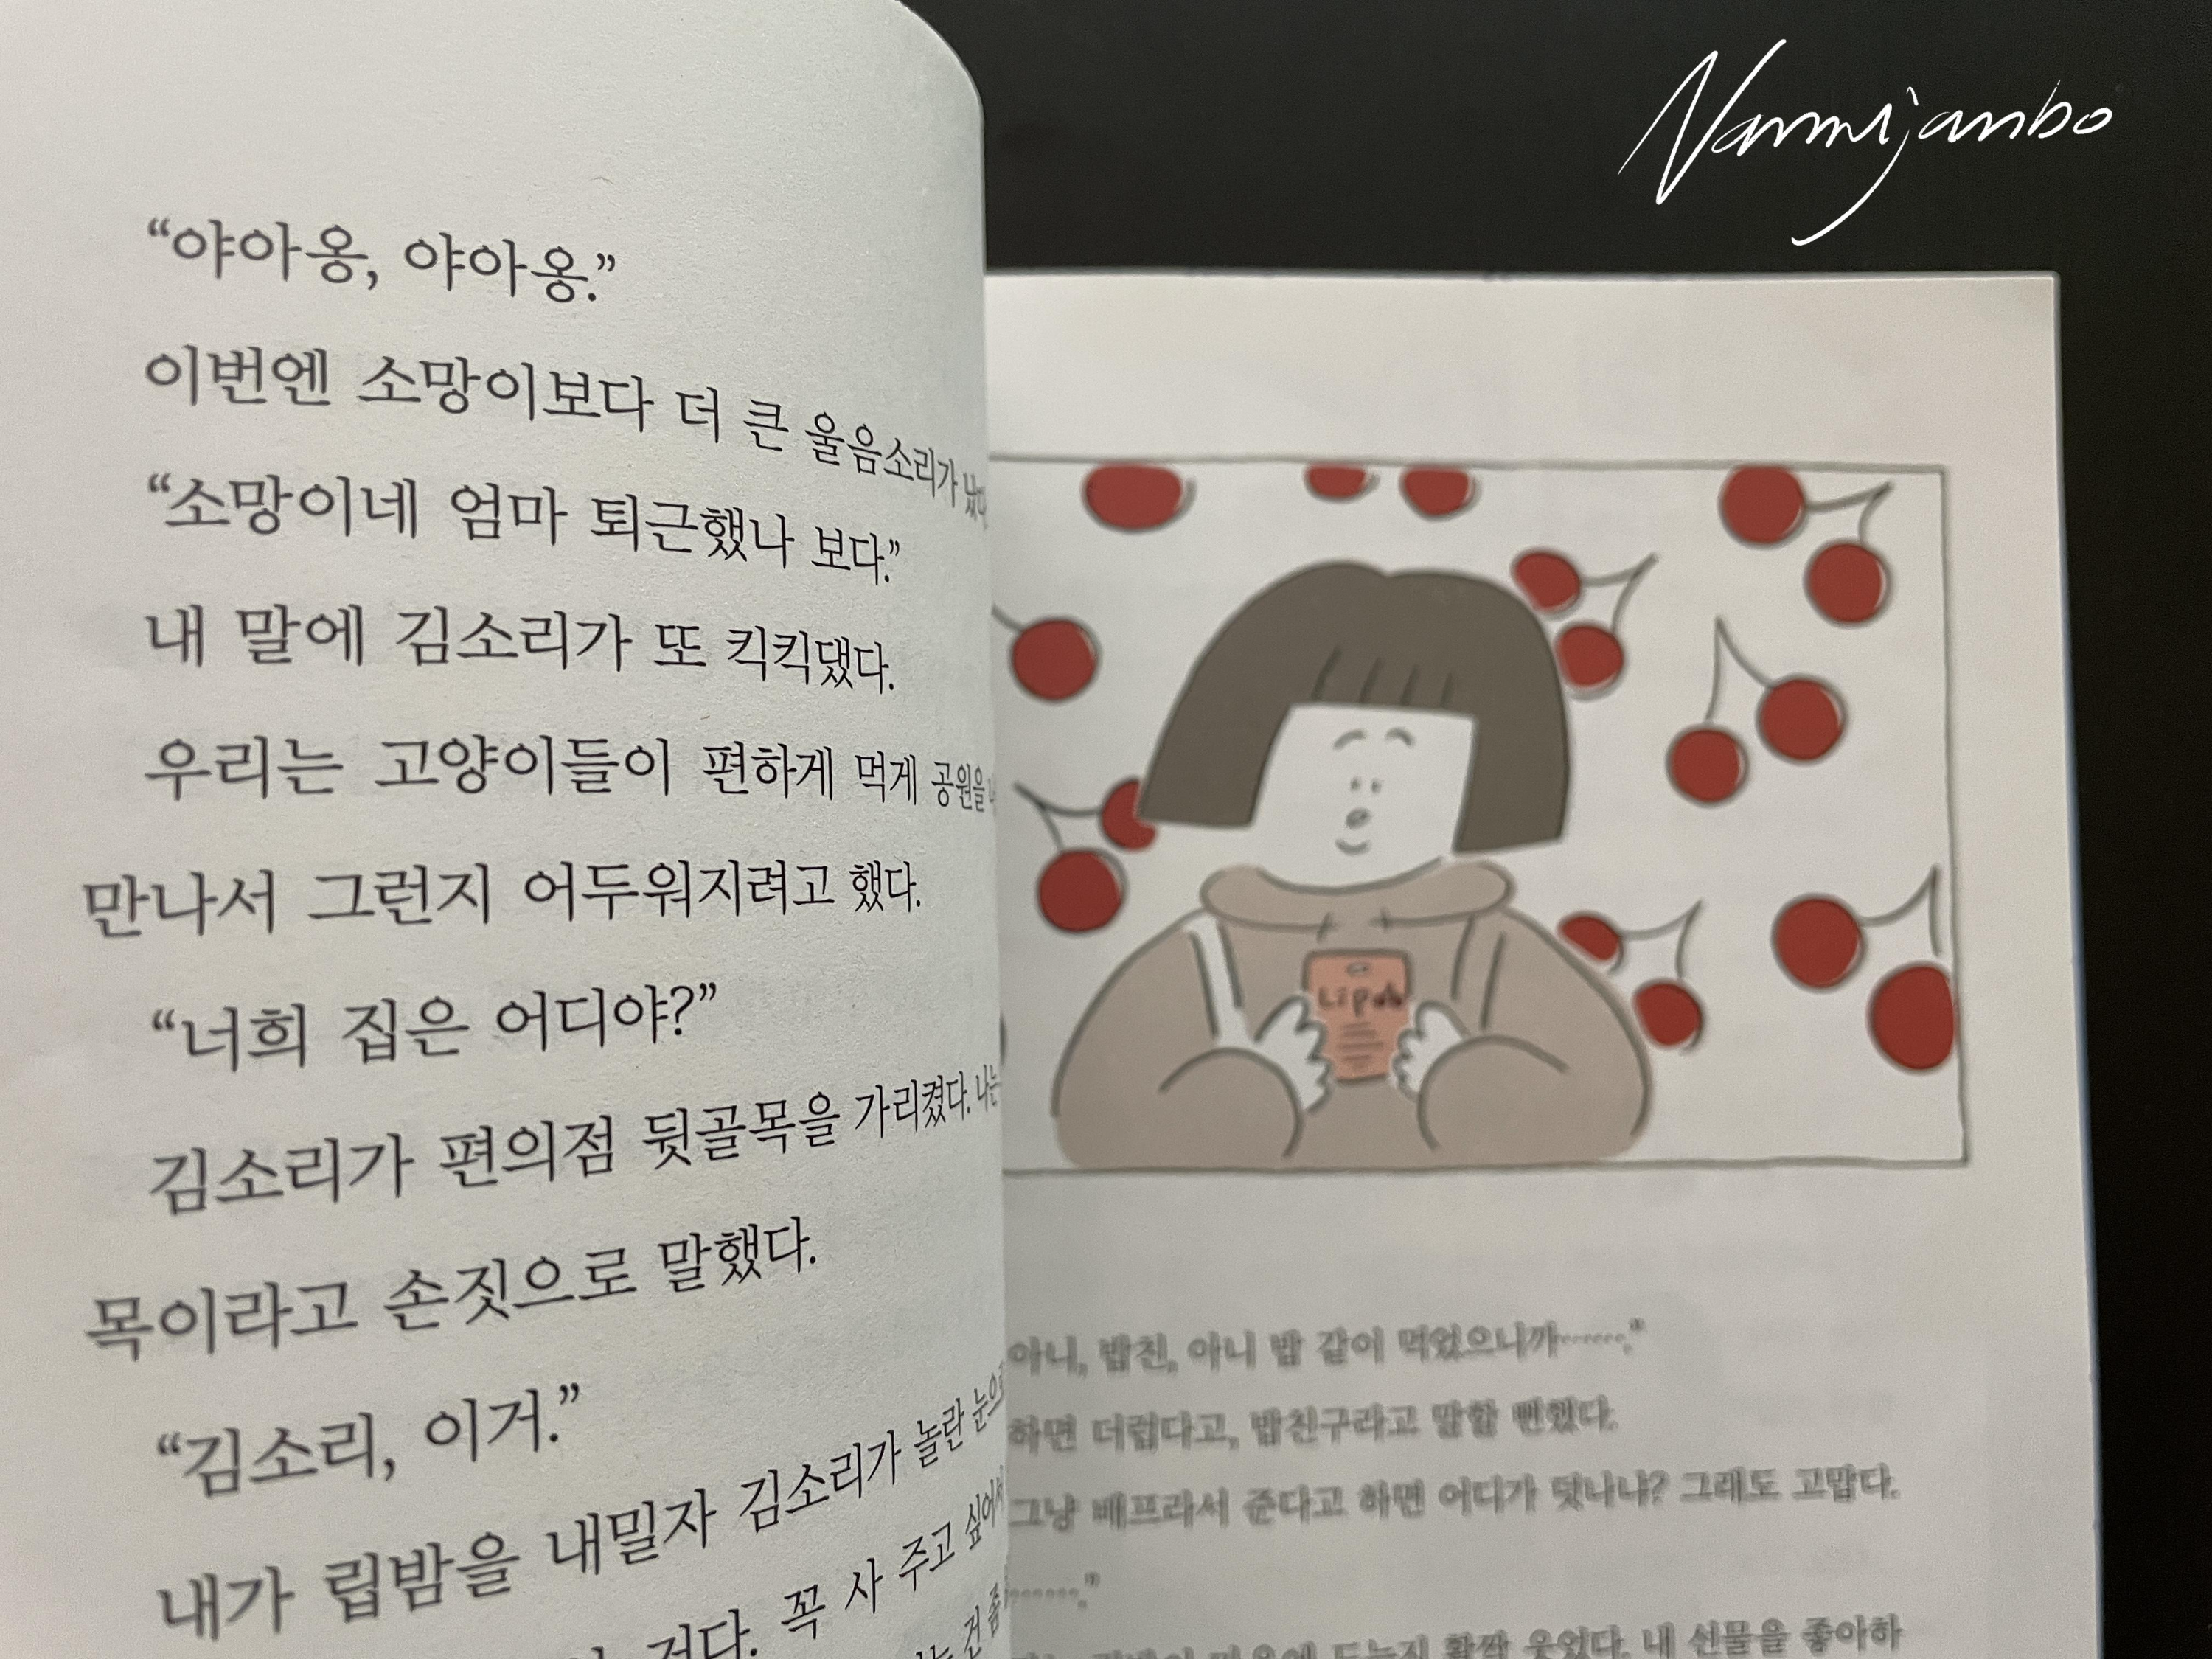 “야아옹, 야아옹.”
이번엔 소망이보다 더 큰 울음소리가 났다
“소망이네 엄마 퇴근했나 보다.”
내 말에 김소리가 또 킥킥댔다.
우리는 고양이들이 편하게 먹게 공원을
만나서 그런지 어두워지려고 했다.
“너희 집은 어디야?”
김소리가 편의점 뒷골목을 가리켰다. 나는
목이라고 손짓으로 말했다.
“김소리, 이거.”
내가 립밤을 내밀자 김소리가 놀란 눈으로
거다. 꼭 사 주고 싶어서
건 좀
Nammijambo
Lipah
아니, 밥친, 아니 밥 같이 먹었으니까…….”
하면 더럽다고, 밥친구라고 말할 뻔했다.
그냥 베프라서 준다고 하면 어디가 덧나냐? 그래도 고맙다.
…….”
마음에 드는지 활짝 웃었다. 내 선물을 좋아하